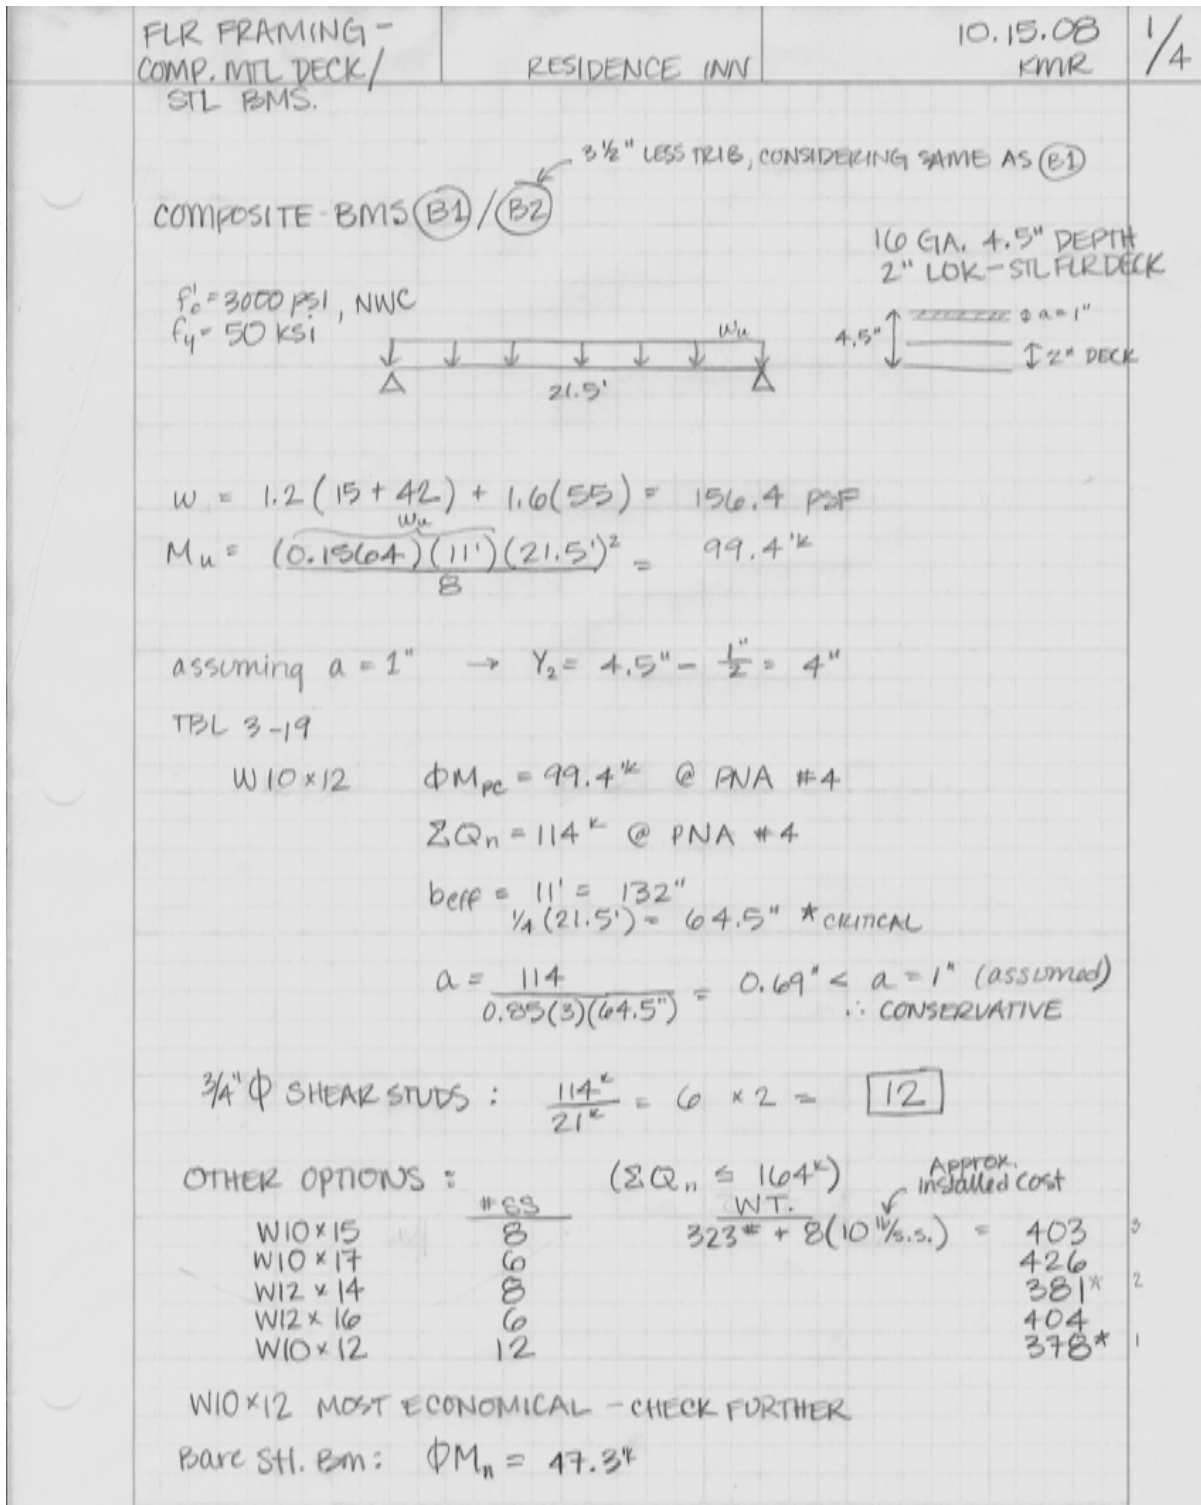 FLR FRAMING -
COMP. MTL DECK/
STL BMS.
RESIDENCE INN
10.15.08
KMR
1/4
3 1/2" LESS TRIB, CONSIDERING SAME AS B1
COMPOSITE BMS B1 / B2
16 GA. 4.5" DEPTH
2" LOK-STL FLR DECK
f'c = 3000 PSI, NWC
fy = 50 KSI
wu
21.5'
4.5"
a = 1"
2" DECK
w = 1.2 (15 + 42) + 1.6(55) = 156.4 PSF
wu
Mu = (0.1564)(11')(21.5')² / 8 = 99.4'k
assuming a = 1" → Y₂ = 4.5" - 1"/2 = 4"
TBL 3-19
W10×12 ΦMpc = 99.4'k @ PNA #4
ΣQn = 114k @ PNA #4
beff = 11' = 132"
1/4 (21.5') = 64.5" * CRITICAL
a = 114 / 0.85(3)(64.5") = 0.69" < a = 1" (assumed)
∴ CONSERVATIVE
3/4" Φ SHEAR STUDS : 114k / 21k = 6 × 2 = 12
OTHER OPTIONS : (ΣQn ≤ 164k) Approx. Installed Cost
# SS WT.
W10×15 8 323# + 8(10 lb/s.s.) = 403 3
W10×17 6 426
W12×14 8 381* 2
W12×16 6 404
W10×12 12 378* 1
W10×12 MOST ECONOMICAL - CHECK FURTHER
Bare Stl. Bm: ΦMn = 47.3'k